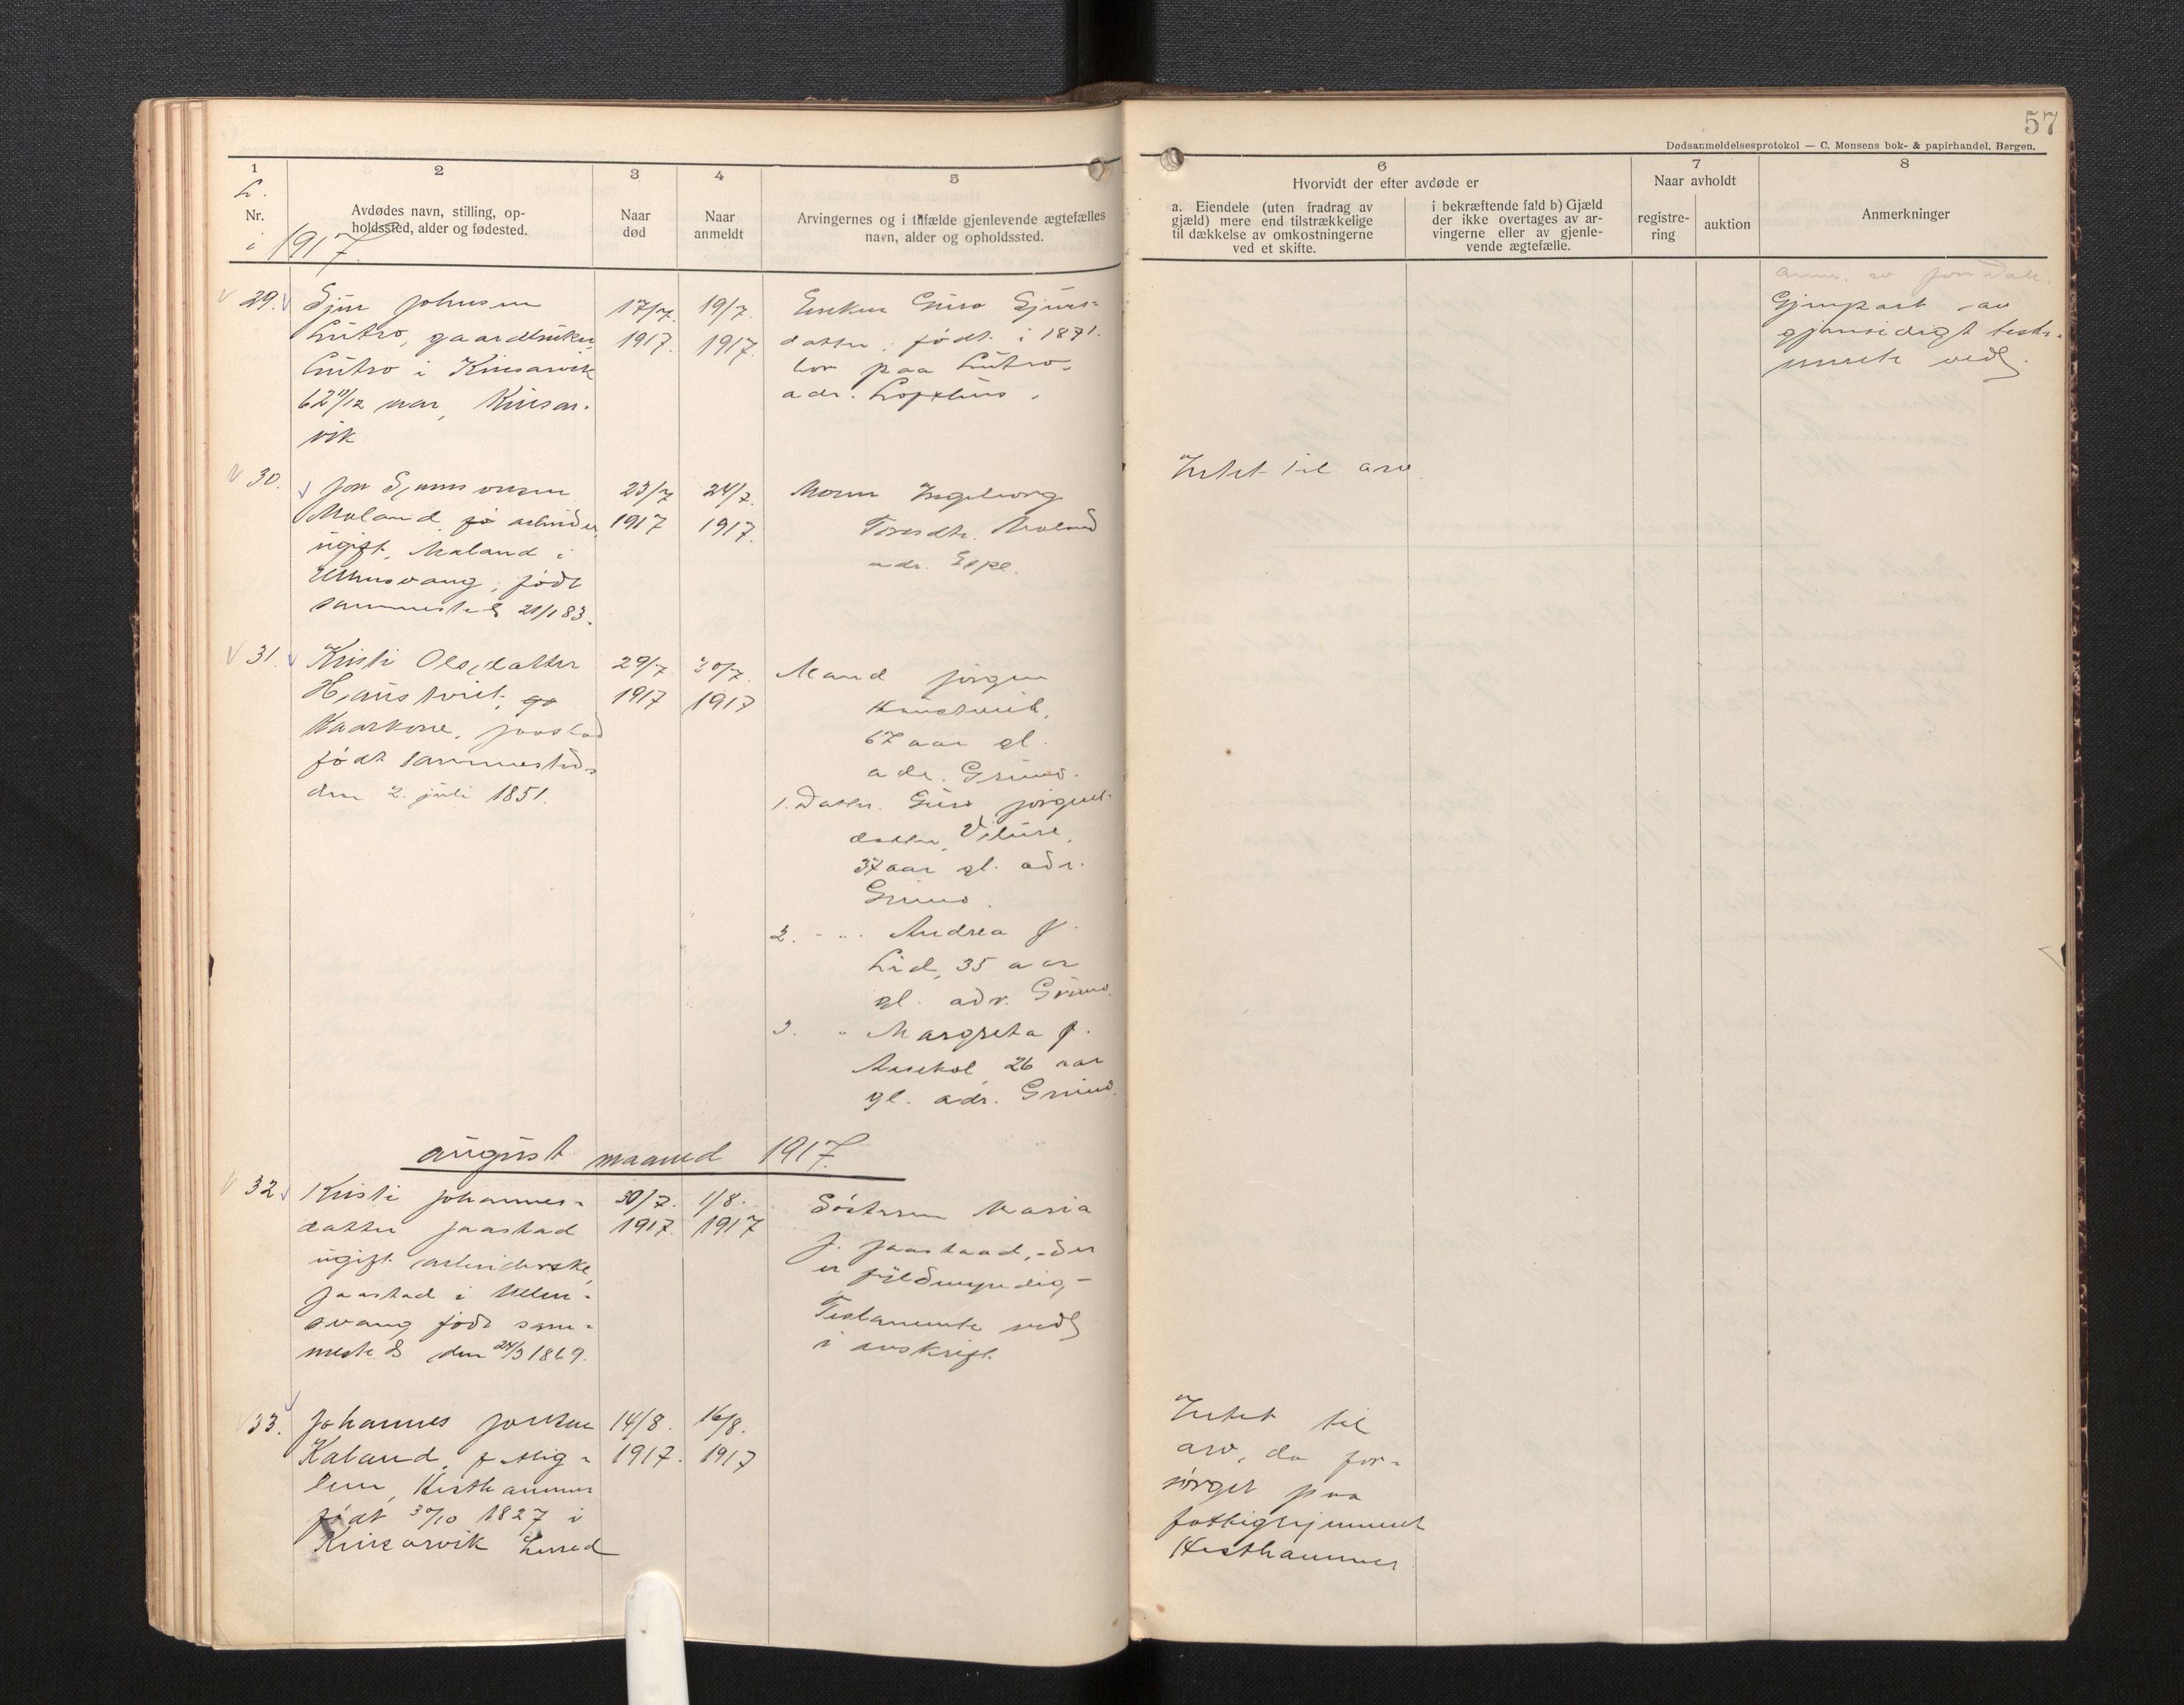 57
Dødsanmeldelsesprotokol — C. Monsens bok- & papirhandel, Bergen.
1
2
3
4
5
6
7
8
L.
Nr.
i 1917.
Avdødes navn, stilling, op-
holdssted, alder og fødested.
Naar
død
Naar
anmeldt
Arvingernes og i tilfælde gjenlevende ægtefælles
navn, alder og opholdssted.
Hvorvidt der efter avdøde er
a. Eiendele (uten fradrag av
gjæld) mere end tilstrækkelige
til dækkelse av omkostningerne
ved et skifte.
i bekræftende fald b) Gjæld
der ikke overtages av ar-
vingerne eller av gjenle-
vende ægtefælle.
Naar avholdt
registre-
ring
auktion
Anmerkninger
29.
Sjur Johnsen
Lutro, gaardbruker,
Lutro i Kinsarvik
62 11/12 aar, Kinsar-
vik
17/7.
1917.
19/7.
1917.
Enken Guro Sjurs-
datter: født i 1871.
bor paa Lutro,
adr. Lofthus.
Gjenpart av
gjensidigt testa-
mente vedl.
30.
Jon
Maland, arbeider,
ugift, Maland i
Ullensvang, født
sammesteds 21/1 83.
23/7
1917
24/7.
1917.
Moren Ingeborg
Maland
adr. Espe.
Intet til arv
31.
Kristi Olsdatter
Haustveit,
kaarkone, Jaastad
født sammesteds
den 2. juli 1851.
29/7.
1917
30/7.
1917
Mand Jørgen
Haustveit,
67 aar gl.
adr. Grimo.
1. Datter. Guro Jørgens-
datter, Vilure,
37 aar gl. adr.
Grimo.
2. - " - Andrea J.
Lid, 35 aar
gl. adr. Grimo.
3. " Margreta J.
26 aar
gl. adr. Grimo.
august maaned 1917.
32.
Kristi Johannes-
datter Jaastad
ugift arbeiderske,
Jaastad i Ullen-
svang født sam-
mesteds den 24/3 1869.
30/7.
1917.
1/8.
1917
Søsteren Maria
J. Jaastad, der
er fyldmyndig,-
Testamente vedl
i avskrift.
33.
Johannes
Kaland, fattig-
lem, Hesthammer
født 30/10 1827 i
Kinsarvik herred
14/8.
1917.
16/8.
1917
Intet til
arv, da for-
sørget paa
fattighjemmet
Hesthammer